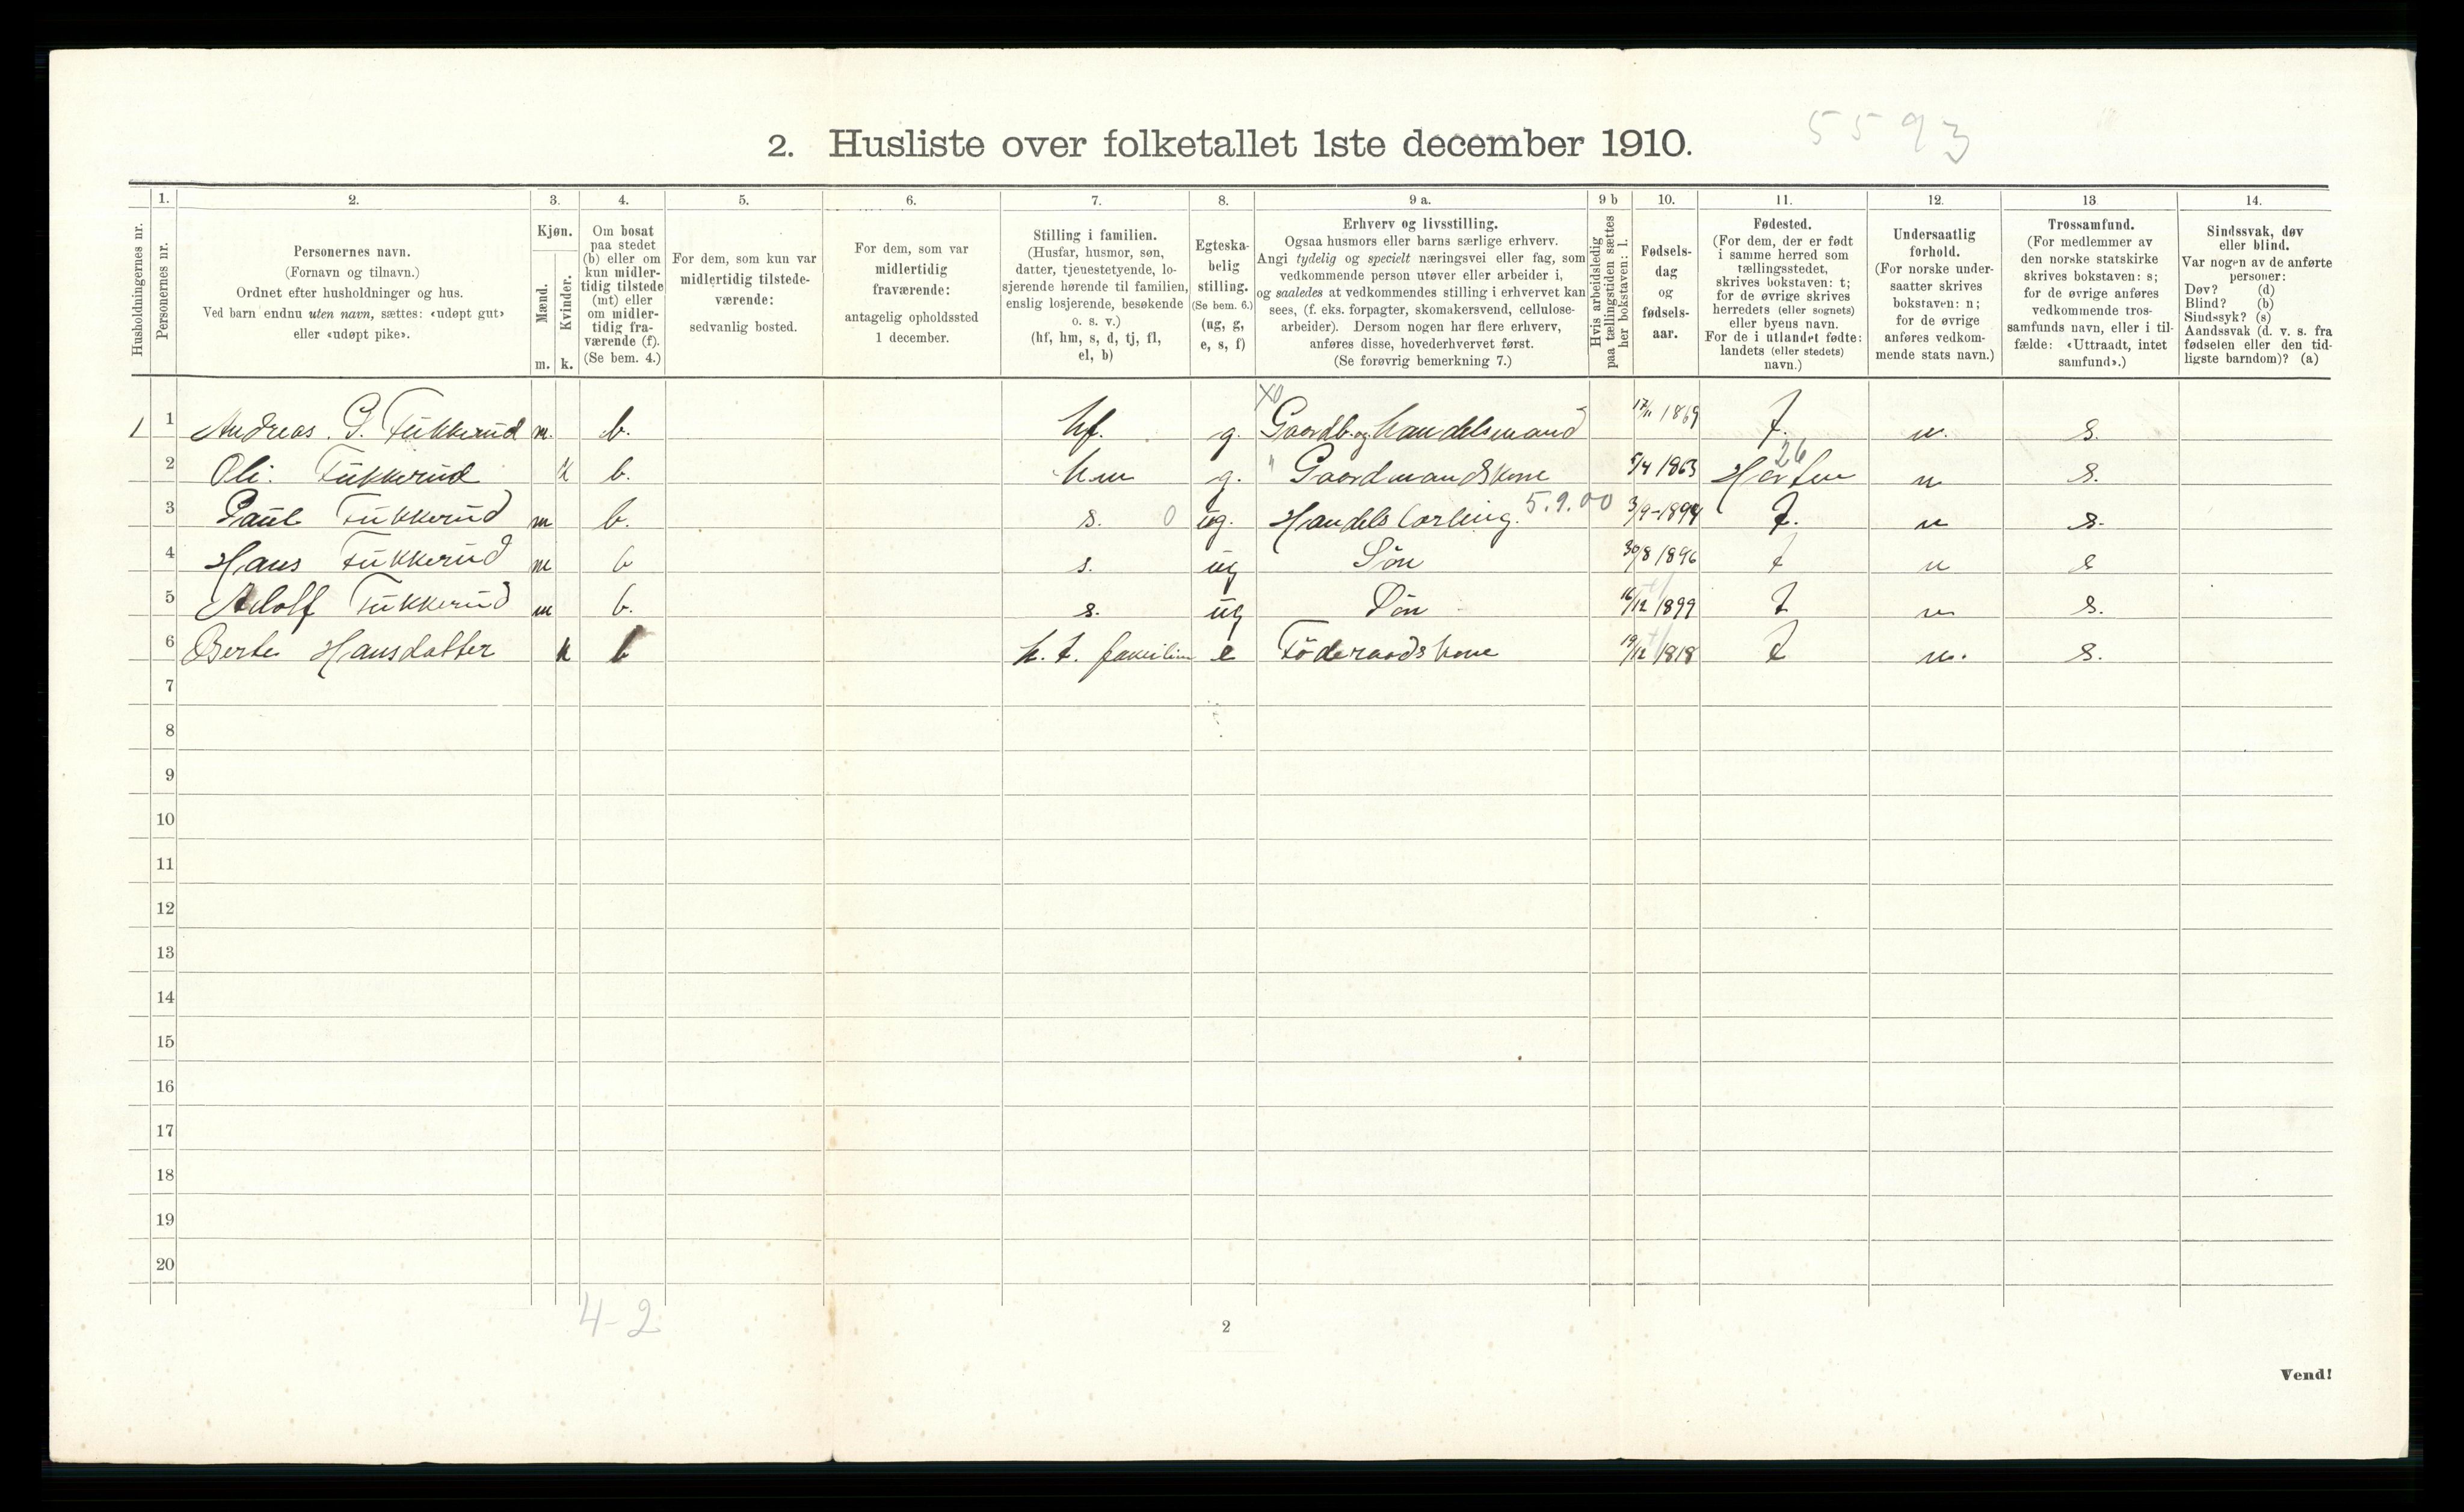 5593
2. Husliste over folketallet 1ste december 1910.
1. 2. 3. 4. 5. 6. 7. 8. 9 a. 9 b 10. 11. 12. 13 14.
Husholdningernes nr.
Personernes nr.
Personernes navn.
(Fornavn og tilnavn.)
Ordnet efter husholdninger og hus.
Ved barn endnu uten navn, sættes: «udøpt gut»
eller «udøpt pike».
Kjøn.
Mænd.
Kvinder.
m. k.
Om bosat
paa stedet
(b) eller om
kun midler-
tidig tilstede
(mt) eller
om midler-
tidig fra-
værende (f).
(Se bem. 4.)
For dem, som kun var
midlertidig tilstede-
værende:
sedvanlig bosted.
For dem, som var
midlertidig
fraværende:
antagelig opholdssted
1 december.
Stilling i familien.
(Husfar, husmor, søn,
datter, tjenestetyende, lo-
sjerende hørende til familien,
enslig losjerende, besøkende
o. s. v.)
(hf, hm, s, d, tj, fl,
el, b)
Egteska-
belig
stilling.
(Se bem. 6.)
(ug, g,
e, s, f)
Erhverv og livsstilling.
Ogsaa husmors eller barns særlige erhverv.
Angi tydelig og specielt næringsvei eller fag, som
vedkommende person utøver eller arbeider i,
og saaledes at vedkommendes stilling i erhvervet kan
sees, (f. eks. forpagter, skomakersvend, cellulose-
arbeider). Dersom nogen har flere erhverv,
anføres disse, hovederhvervet først.
(Se forøvrig bemerkning 7.)
Hvis arbeidsledig
paa tællingstiden sættes
her bokstaven: l.
Fødsels-
dag
og
fødsels-
aar.
Fødested.
(For dem, der er født
i samme herred som
tællingsstedet,
skrives bokstaven: t;
for de øvrige skrives
herredets (eller sognets)
eller byens navn.
For de i utlandet fødte:
landets (eller stedets)
navn.)
Undersaatlig
forhold.
(For norske under-
saatter skrives
bokstaven: n;
for de øvrige
anføres vedkom-
mende stats navn.)
Trossamfund.
(For medlemmer av
den norske statskirke
skrives bokstaven: s;
for de øvrige anføres
vedkommende tros-
samfunds navn, eller i til-
fælde: «Uttraadt, intet
samfund».)
Sindssvak, døv
eller blind.
Var nogen av de anførte
personer:
Døv? (d)
Blind? (b)
Sindssyk? (s)
Aandssvak (d. v. s. fra
fødselen eller den tid-
ligste barndom)? (a)
X0
1 1 Andreas. G. Tukkerud m. b. hf. g. Gaardb. og handelsmand 17/11 1869 t. n. s.
26
2 Oli. Tukkerud k b. hm g. " Gaardmandskone 5/4 1863 Horten n s.
3 Paul Tukkerud m b. s. 0 ug. Handelslærling. 5.9.00 3/9-1894 t. n s.
4 Hans Tukkerud m b s. ug Søn 30/8 1896 t n s
5 Adolf Tukkerud m b. s. ug Søn 16/12 1899 t n s.
6 Berte Hansdatter k b h. t. familien e Føderaadskone 19/12 1818 t n. s.
7
8
9
10
11
12
13
14
15
16
17
18
19
20
4-2
2
Vend!